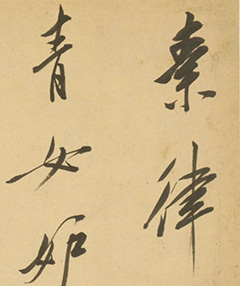 素律
青女妒